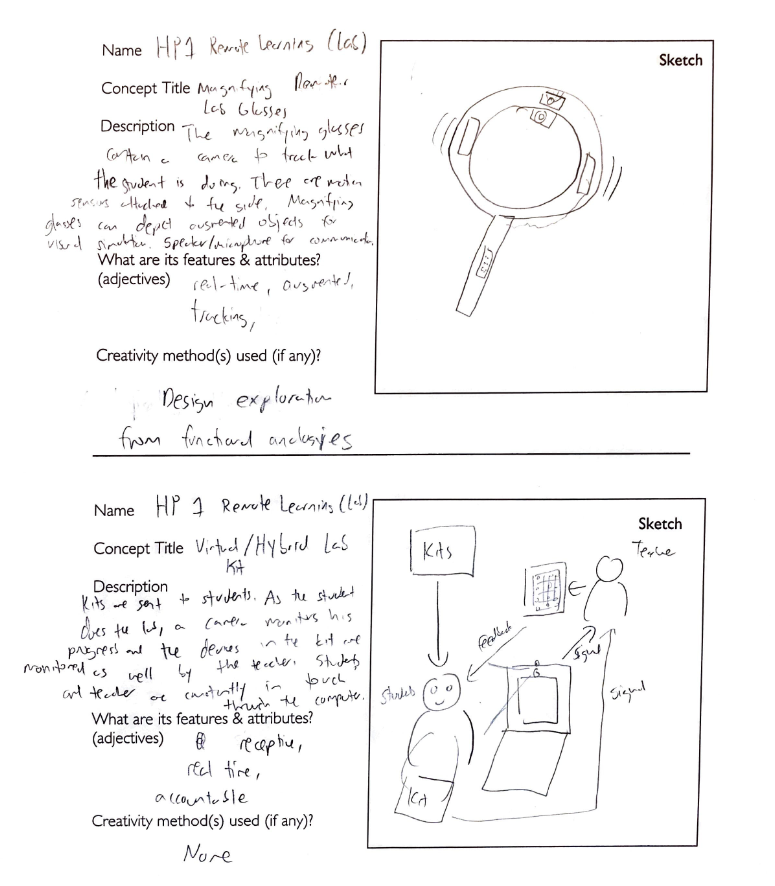 Name HP1 Remote Learning (Lab)
Sketch
Concept Title Magnifying Remote
Lab Glasses
Description The magnifying glasses
contain a camera to track what
the student is doing. There are motion
sensors attached to the side. Magnifying
glasses can depict augmented objects for
visual simulation. Speaker/microphone for communication.
What are its features & attributes?
(adjectives) real-time, augmented,
tracking,
Creativity method(s) used (if any)?
Design exploration
from functional analogies
Name HP 1 Remote Learning (Lab)
Sketch
Concept Title Virtual/Hybrid Lab
Kit
Description
Kits are sent to students. As the student
does the lab, a camera monitors his
progress and the devices in the kit are
monitored as well by the teacher. Students
and teacher are constantly in touch
through the computer.
What are its features & attributes?
(adjectives) receptive,
real time,
accountable
Creativity method(s) used (if any)?
None
Kits
Teacher
Feedback
Signal
Students
Signal
Kit